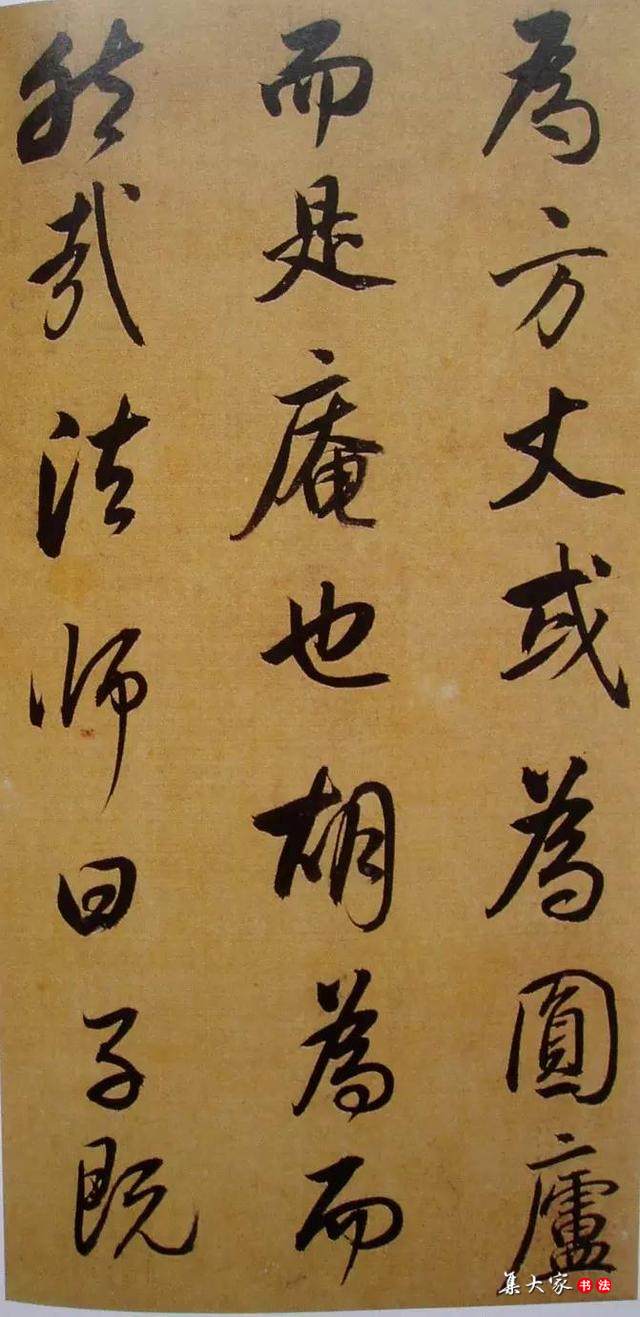 為方丈或為圓廬
而是庵也胡為而
然哉法师曰子既
集大家书法